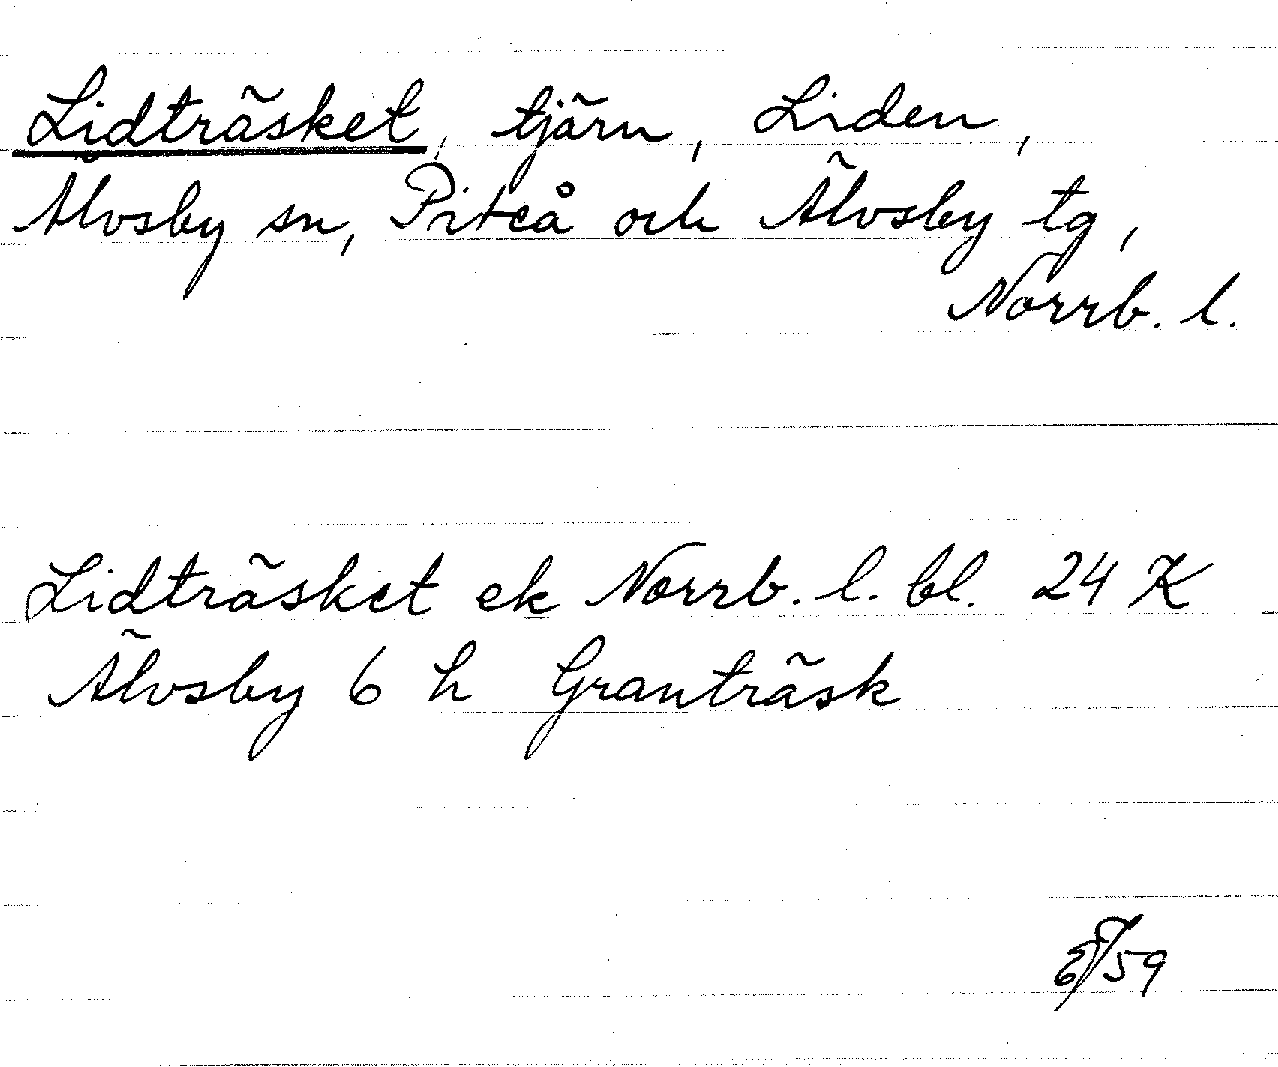 Lidträsket, tjärn, Liden,
Älvsby sn, Piteå och Älvsby tg,
Norrb. l.
Lidträsket ek Norrb. l. bl. 24 K
Älvsby 6 h Granträsk
/59